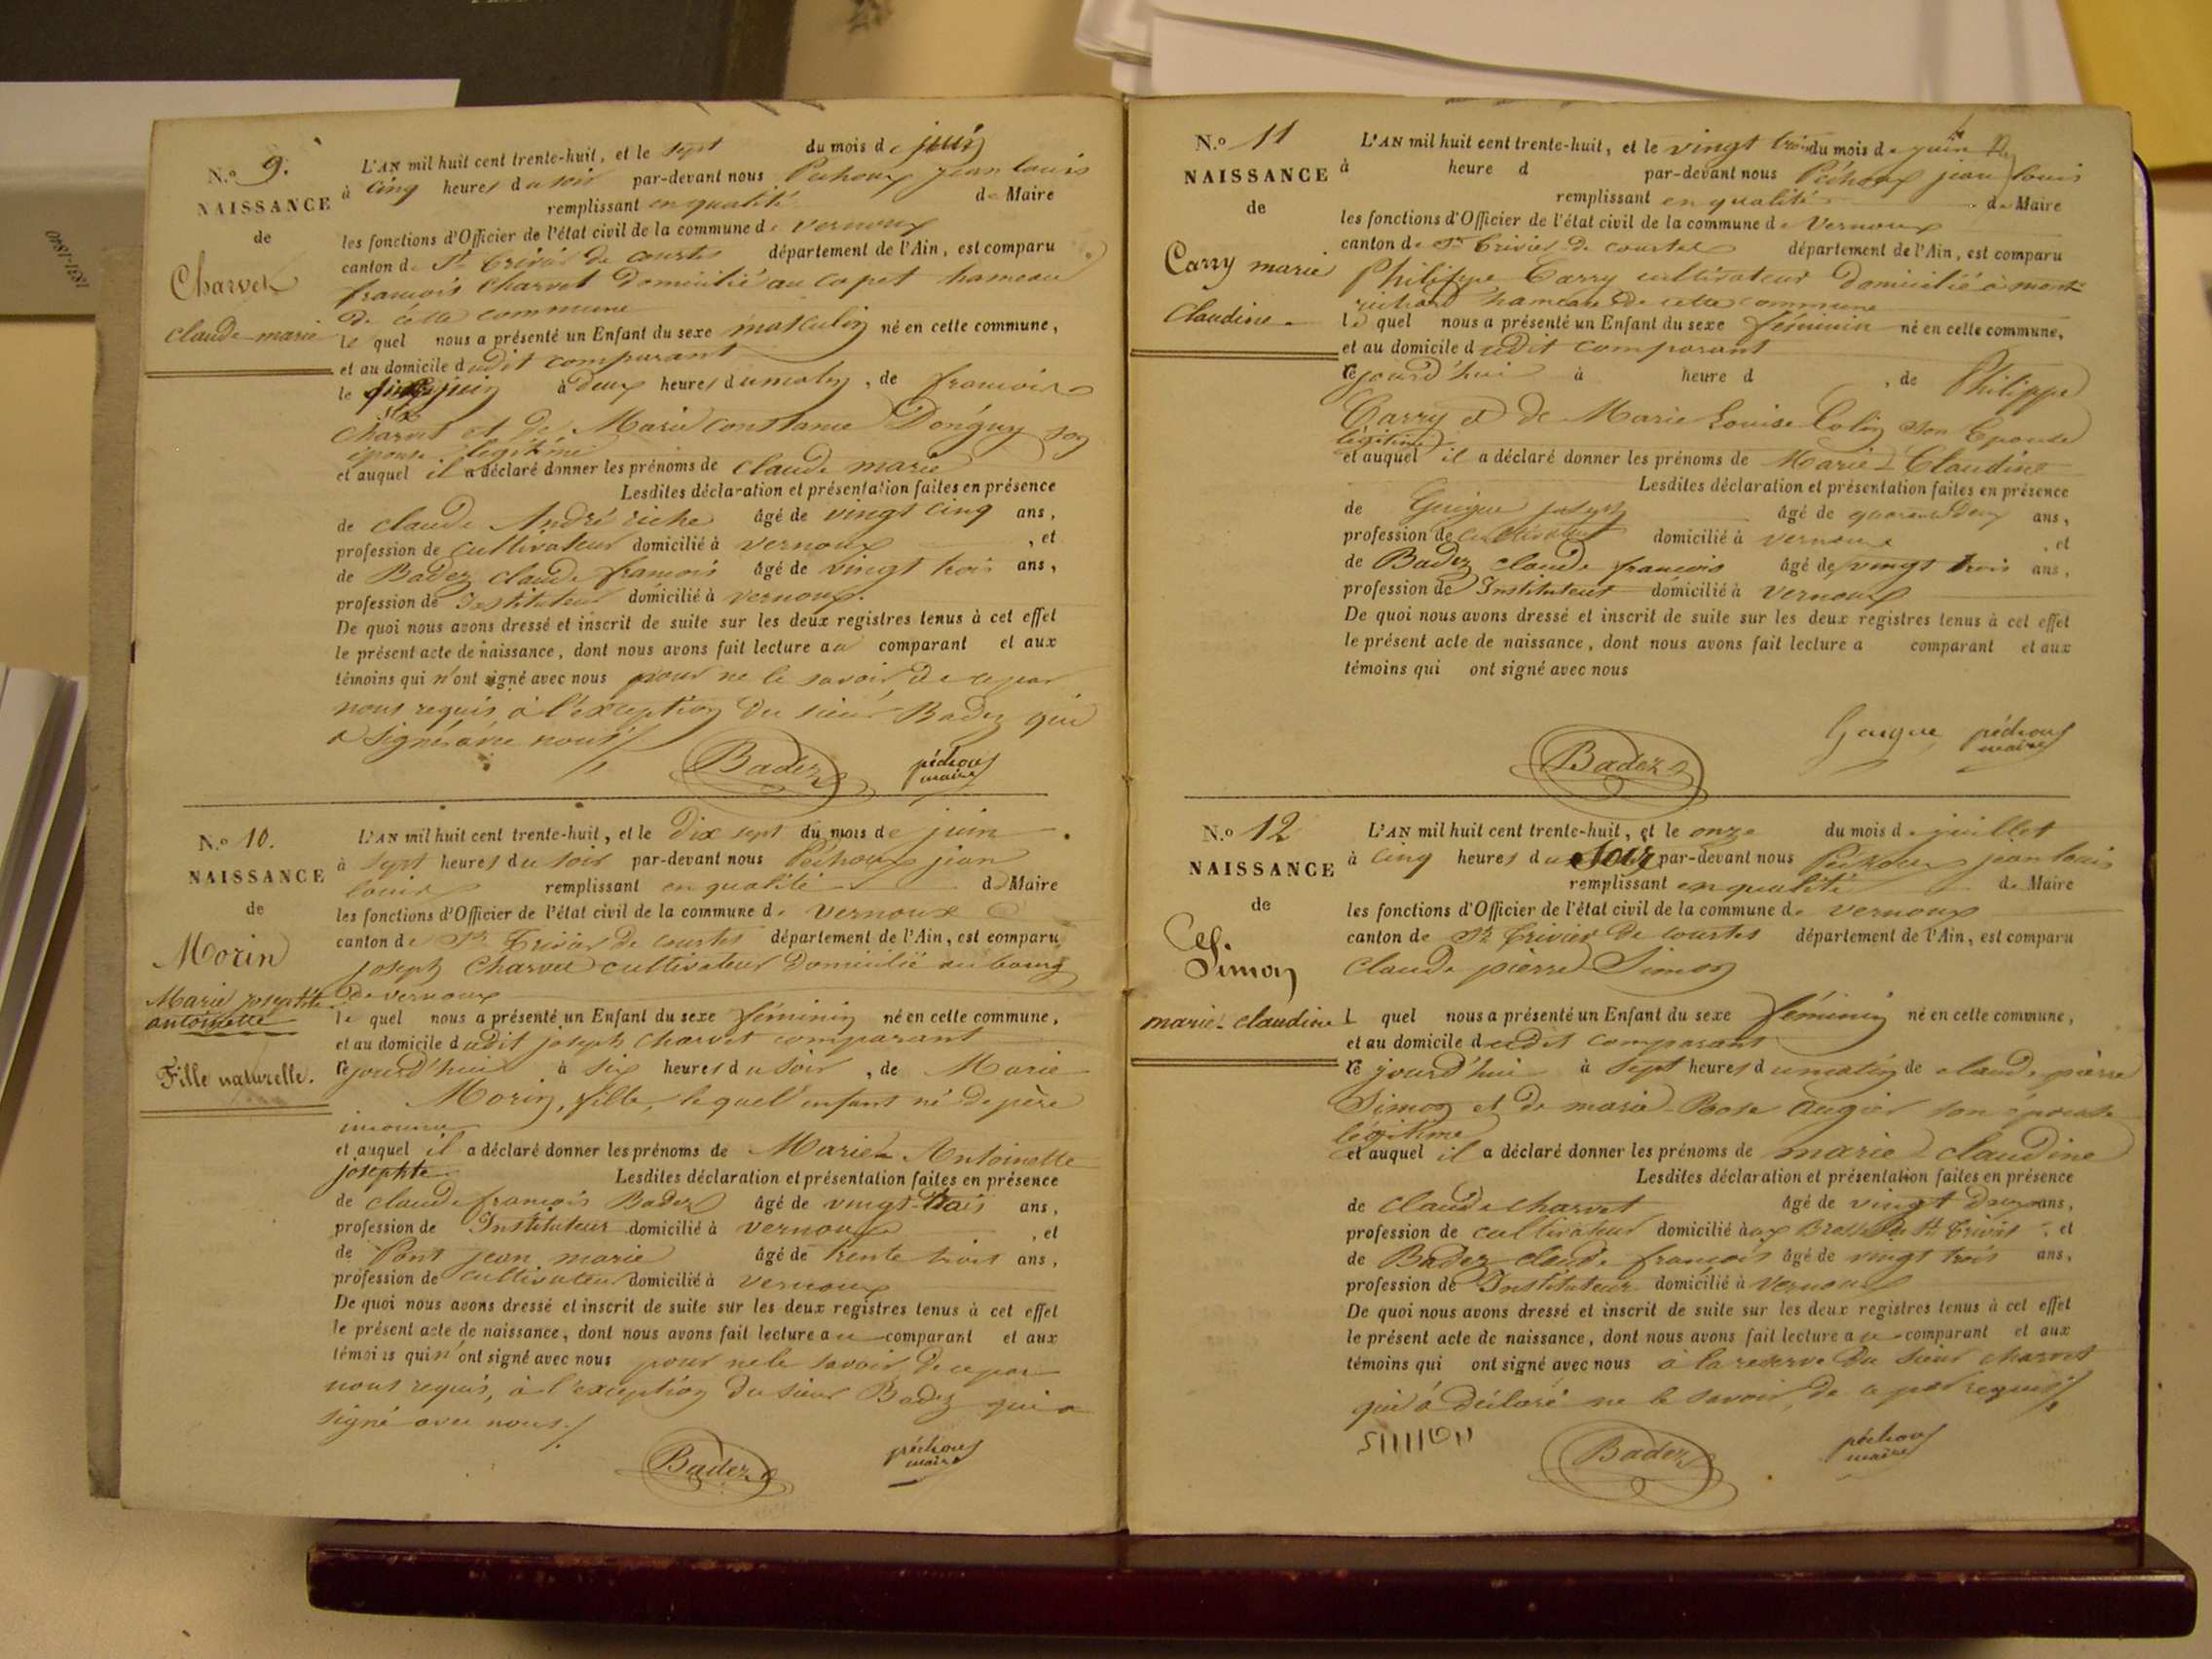 1831-1840
N.o 9.
NAISSANCE
de
Charvet
claude marie
L'AN mil huit cent trente-huit, et le sept du mois de juin
à cinq heures du soir par-devant nous Péchoux jean louis
remplissant en qualité de Maire
les fonctions d'Officier de l'état civil de la commune de vernoux
canton de St trivier de courtes département de l'Ain, est comparu
francois Charvet Domicilié au copet hameau
de cette commune
le quel nous a présenté un Enfant du sexe masculin né en cette commune,
et au domicile dudit comparant
le juin à deux heures du matin, de francois
six
Charvet et de Marie constance Donguy son
épouse légitime
et auquel il a déclaré donner les prénoms de claude marie
Lesdites déclaration et présentation faites en présence
de claude André riche âgé de vingt cinq ans,
profession de cultivateur domicilié à vernoux, et
de Badez claude francois âgé de vingt trois ans,
profession de Instituteur domicilié à vernoux.
De quoi nous avons dressé et inscrit de suite sur les deux registres tenus à cet effet
le présent acte de naissance, dont nous avons fait lecture au comparant et aux
témoins qui n'ont signé avec nous pour ne le savoir de ce par
nous requis à l'exception du sieur Badez qui
a signé avec nous
Badez péchoux
maire
N.o 10.
NAISSANCE
de
Morin
Marie josephte
antoinette
Fille naturelle.
L'AN mil huit cent trente-huit, et le dix sept du mois de juin
à sept heures du soir par-devant nous Péchoux jean
louis remplissant en qualité de Maire
les fonctions d'Officier de l'état civil de la commune de vernoux
canton de St Trivier de courtes département de l'Ain, est comparu
joseph Charvet cultivateur Domicilié au bourg
de vernoux
le quel nous a présenté un Enfant du sexe féminin né en cette commune,
et au domicile dudit joseph Charvet comparant
cejourd'hui à six heures du soir, de Marie
Morin, fille, lequel enfant né de père
inconnu
et auquel il a déclaré donner les prénoms de Marie Antoinette
josephte Lesdites déclaration et présentation faites en présence
de claude françois Badez âgé de vingt-trois ans,
profession de Instituteur domicilié à vernoux, et
de Pont jean marie âgé de trente trois ans,
profession de cultivateur domicilié à vernoux
De quoi nous avons dressé et inscrit de suite sur les deux registres tenus à cet effet
le présent acte de naissance, dont nous avons fait lecture au comparant et aux
témoins qui n'ont signé avec nous pour ne le savoir de ce par
nous requis, à l'exception du sieur Badez qui a
signé avec nous
Badez péchoux
maire
N.o 11
NAISSANCE
de
Carry marie
Claudine
L'AN mil huit cent trente-huit, et le vingt trois du mois de juin
à heure d par-devant nous Péchoux jean louis
remplissant en qualité de Maire
les fonctions d'Officier de l'état civil de la commune de Vernoux
canton de St trivier de courtes département de l'Ain, est comparu
Philippe Carry cultivateur Domicilié à mont
richard hameau de cette commune
le quel nous a présenté un Enfant du sexe féminin né en cette commune,
et au domicile dudit comparant
cejourd'hui à heure d, de Philippe
Carry et de Marie Louise Colin son Epouse
légitime
et auquel il a déclaré donner les prénoms de Marie Claudine
Lesdites déclaration et présentation faites en présence
de Guigue joseph âgé de quarante deux ans,
profession de cultivateur domicilié à vernoux, et
de Badez claude francois âgé de vingt trois ans,
profession de Instituteur domicilié à vernoux
De quoi nous avons dressé et inscrit de suite sur les deux registres tenus à cet effet
le présent acte de naissance, dont nous avons fait lecture a comparant et aux
témoins qui ont signé avec nous
Guigue péchoux
maire
Badez
N.o 12
NAISSANCE
de
Simon
marie claudine
L'AN mil huit cent trente-huit, et le onze du mois de juillet
à cinq heures du soir par-devant nous Péchoux jean louis
remplissant en qualité de Maire
les fonctions d'Officier de l'état civil de la commune de vernoux
canton de St trivier de courtes département de l'Ain, est comparu
Claude pierre Simon
l quel nous a présenté un Enfant du sexe féminin né en cette commune,
et au domicile dudit comparant
ce jourd'hui à sept heures du matin de claude pierre
Simon et de marie Rose augier son épouse
légitime
et auquel il a déclaré donner les prénoms de marie claudine
Lesdites déclaration et présentation faites en présence
de claude charvet âgé de vingt deux ans,
profession de cultivateur domicilié à St trivier, et
de Badez claude françois âgé de vingt trois ans,
profession de Instituteur domicilié à vernoux
De quoi nous avons dressé et inscrit de suite sur les deux registres tenus à cet effet
le présent acte de naissance, dont nous avons fait lecture au comparant et aux
témoins qui ont signé avec nous à la réserve du sieur charvet
qui a déclaré ne le savoir de ce par requis
SIMON Badez péchoux
maire